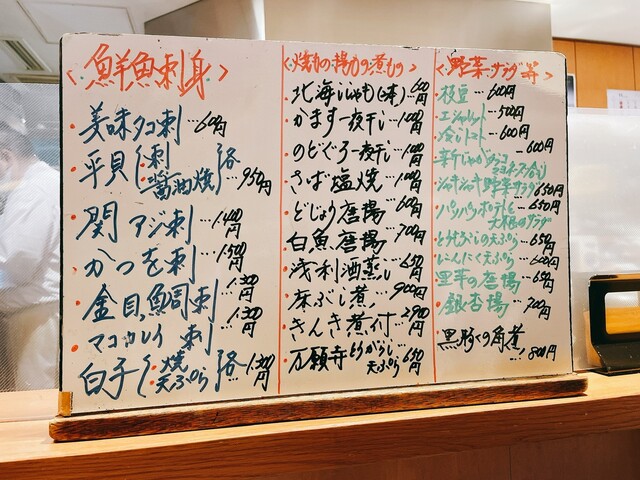 〈鮮魚刺身〉
・美味タコ刺…600円
・平貝(・刺 ・醤油焼)各950円
・関アジ刺…1,400円
・かつを刺…1,500円
・金目鯛刺…1,300円
・マコガレイ刺…1,300円
・白子(・焼 ・天ぷら)各…1,300円
〈焼もの・揚もの・煮もの〉
・北海ししゃも(本)…600円
・かます一夜干し…1,000円
・のどぐろ一夜干し…1,000円
・さば塩焼…1,000円
・どじょう唐揚…600円
・白魚唐揚…700円
・浅利酒蒸し…650円
・床ぶし煮…900円
・きんき煮付…2,900円
・万願寺とうがらし天ぷら…650円
〈野菜・サラダ等〉
・枝豆…600円
・エシャレット…500円
・冷しトマト…600円
・新じゃが
…600円
・シャキシャキ野菜サラダ650円
・パリパリポテトと大根のサラダ650円
・とうもろこしの天ぷら…650円
・にんにく天ぷら…600円
・里芋の唐揚…650円
・銀杏揚…700円
・黒豚の角煮…800円